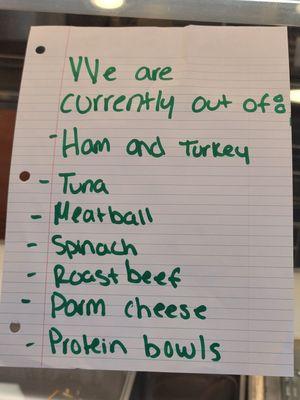 We are
currently out of:
- Ham and Turkey
- Tuna
- Meatball
- Spinach
- Roast beef
- Parm cheese
- Protein bowls